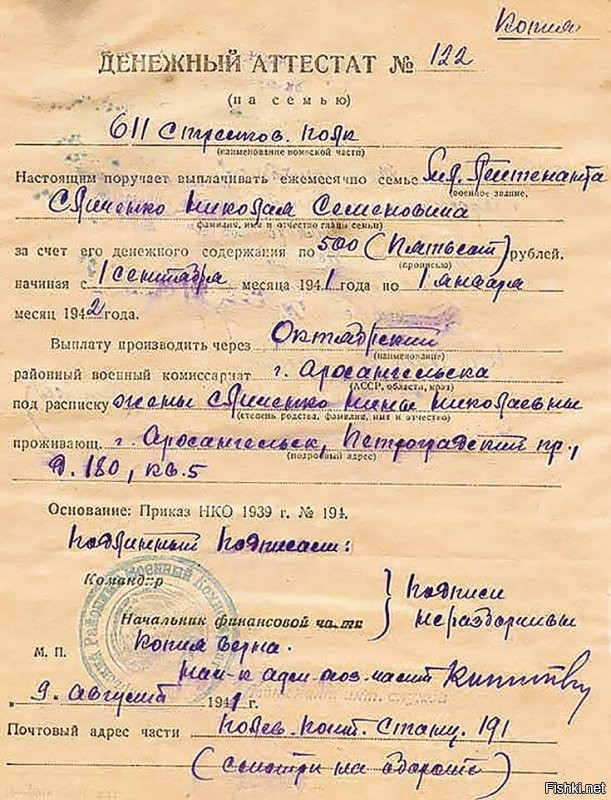 Копия
ДЕНЕЖНЫЙ АТТЕСТАТ № 122
(на семью)
611 Стрелков. полк
(наименование воинской части)
Настоящим поручает выплачивать ежемесячно семье Мл. Лейтенанта
(военное звание,
Николая Семеновича
фамилия, имя и отчество главы семьи)
за счет его денежного содержания по 500 (Пятьсот) рублей,
(прописью)
начиная с 1 сентября месяца 1941 года по 1 января
месяц 1942 года.
Выплату производить через Октябрьский
(наименование)
районный военный комиссариат г. Архангельска
(АССР, области, края)
под расписку жены Нины Николаевны
(степень родства, фамилия, имя и отчество)
проживающ. г. Архангельск, Петроградский пр.,
(подробный адрес)
д. 180, кв. 5
Основание: Приказ НКО 1939 г. № 194.
Подлинный подписали:
Командир
Начальник финансовой части
} Подписи
неразборчивы
М. П.
Копия верна.
Нач-к адм. хоз. части
„ 9 . август 1941 г.
Почтовый адрес части Полев. почт. Станц. 191
(смотри на обороте)
Fishki.net